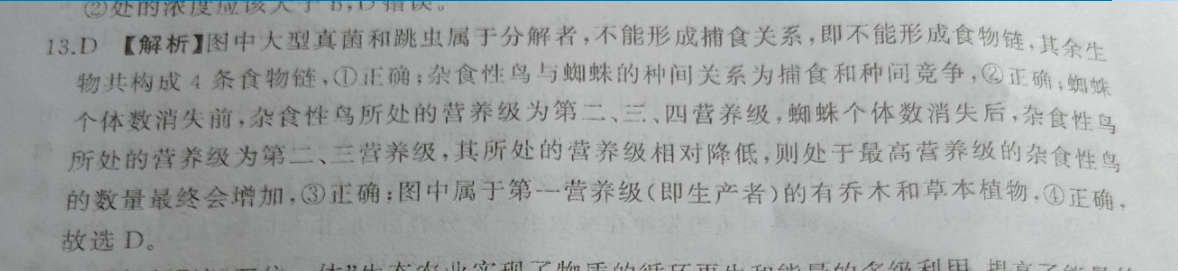 ②处的浓度应该大于 b,D 错误。
13.D 【解析】图中大型真菌和跳虫属于分解者,不能形成捕食关系,即不能形成食物链,其余生
物共构成 4 条食物链,①正确;杂食性鸟与蜘蛛的种间关系为捕食和种间竞争,②正确;蜘蛛
个体数消失前,杂食性鸟所处的营养级为第二、三、四营养级,蜘蛛个体数消失后,杂食性鸟
所处的营养级为第二、三营养级,其所处的营养级相对降低,则处于最高营养级的杂食性鸟
的数量最终会增加,③正确;图中属于第一营养级(即生产者)的有乔木和草本植物,④正确,
故选 D。
体"生态农业实现了物质的循环再生和能量的多级利用,提高了能量的